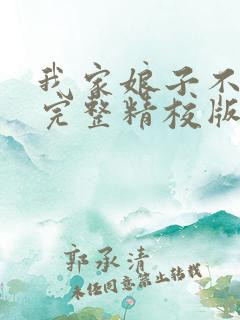 我家娘子不
完整精校版
郭承清
未经同意禁止转载